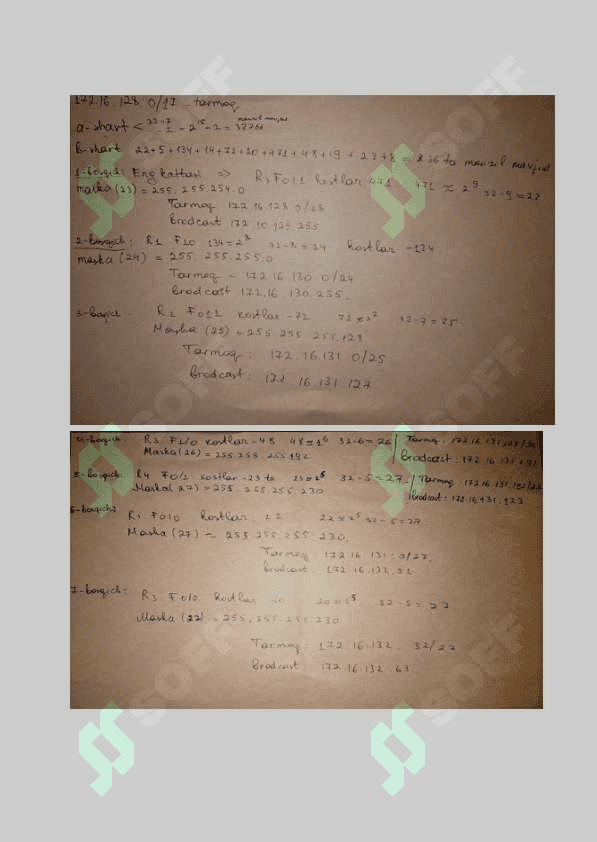 172.16.128.0/17 - tarmoq
a-shart < 2^(32-17) - 2^15 - 2 = 32766
b-shart 22+5+134+14+72+20+471+48+19+23+8 = 836 ta manzil mavjud
1-bosqich: Eng kattasi => R3 F0/1 hostlar 471 471 ≈ 2^9 32-9=23
maska (23) = 255.255.254.0
Tarmoq 172.16.128.0/23
Brodcast 172.16.129.255
2-bosqich: R1 F1/0 134=2^8 32-8=24 hostlar -134
maska (24) = 255.255.255.0
Tarmoq - 172.16.130.0/24
Brodcast 172.16.130.255.
3-bosqich: R2 F0/1 hostlar -72 72≈2^7 32-7=25.
Maska (25) = 255.255.255.128
Tarmoq: 172.16.131.0/25
Brodcast: 172.16.131.127
4-bosqich: R3 F1/0 hostlar - 48 48≈2^6 32-6=26 Tarmoq: 172.16.131.128/26
Maska (26) = 255.255.255.192 Brodcast: 172.16.131.191
5-bosqich: R4 F0/1 hostlar - 23 ta 23≈2^5 32-5=27 Tarmoq 172.16.131.192/27
Maska(27) = 255.255.255.230 Brodcast: 172.16.131.223
6-bosqich: R1 F0/0 hostlar 22 22≈2^5 32-5=27
Maska (27) - 255.255.255.230.
Tarmoq 172.16.131.0/27.
Brodcast. 172.16.132.31
7-bosqich: R3 F0/0 hostlar 20 20≈2^5 32-5=27
Maska (27) = 255.255.255.230
Tarmoq: 172.16.132.32/27
Brodcast 172.16.132.63
SOFF
SOFF
SOFF
SOFF